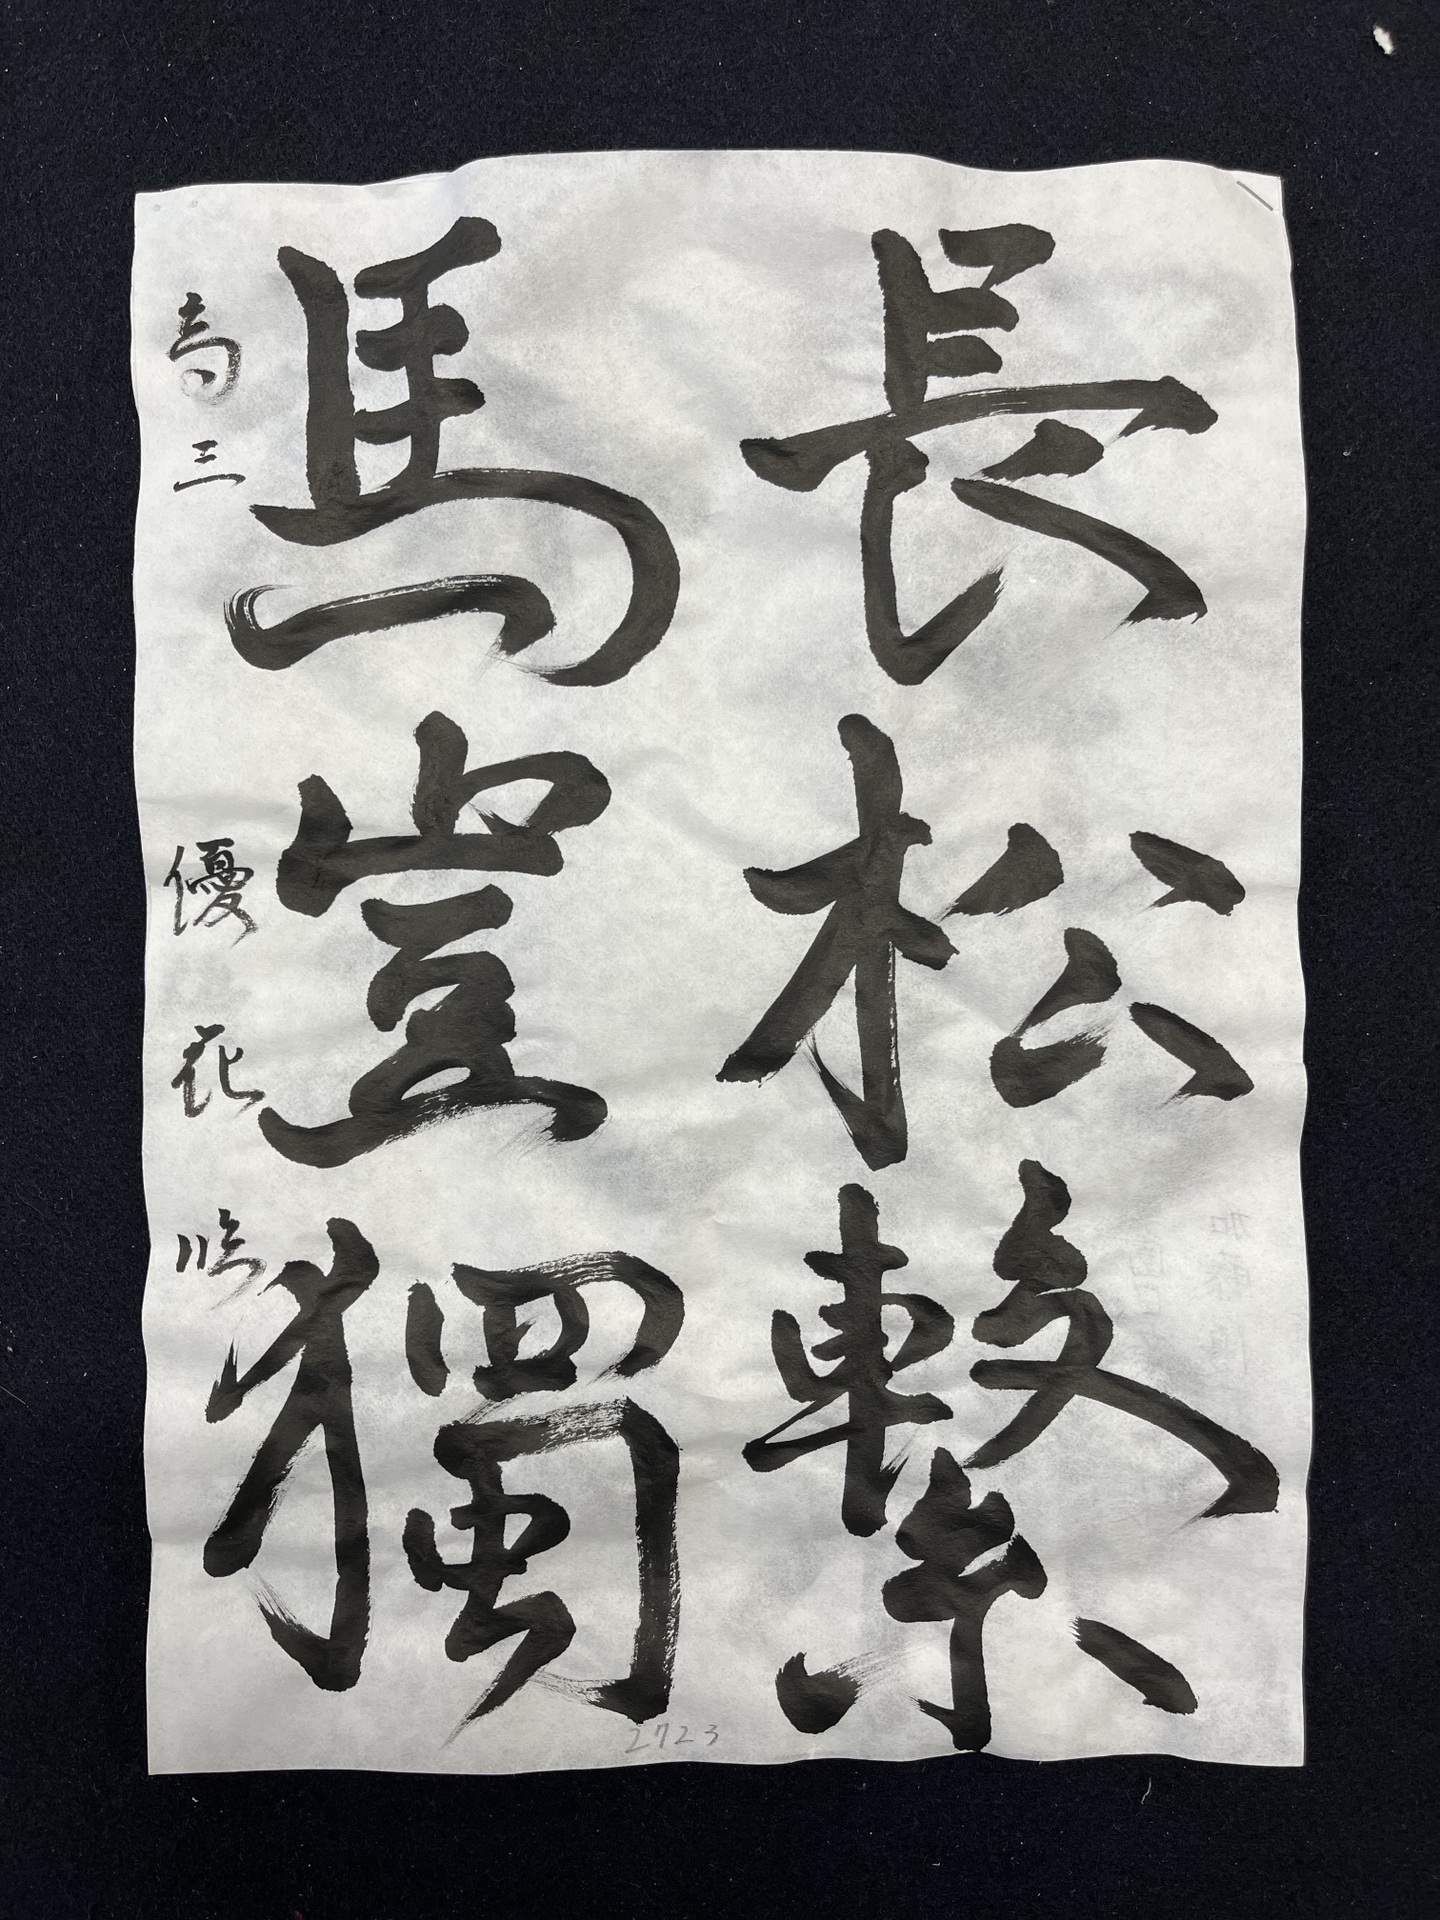 長松繋
馬豈獨
高三 優花 臨
2723